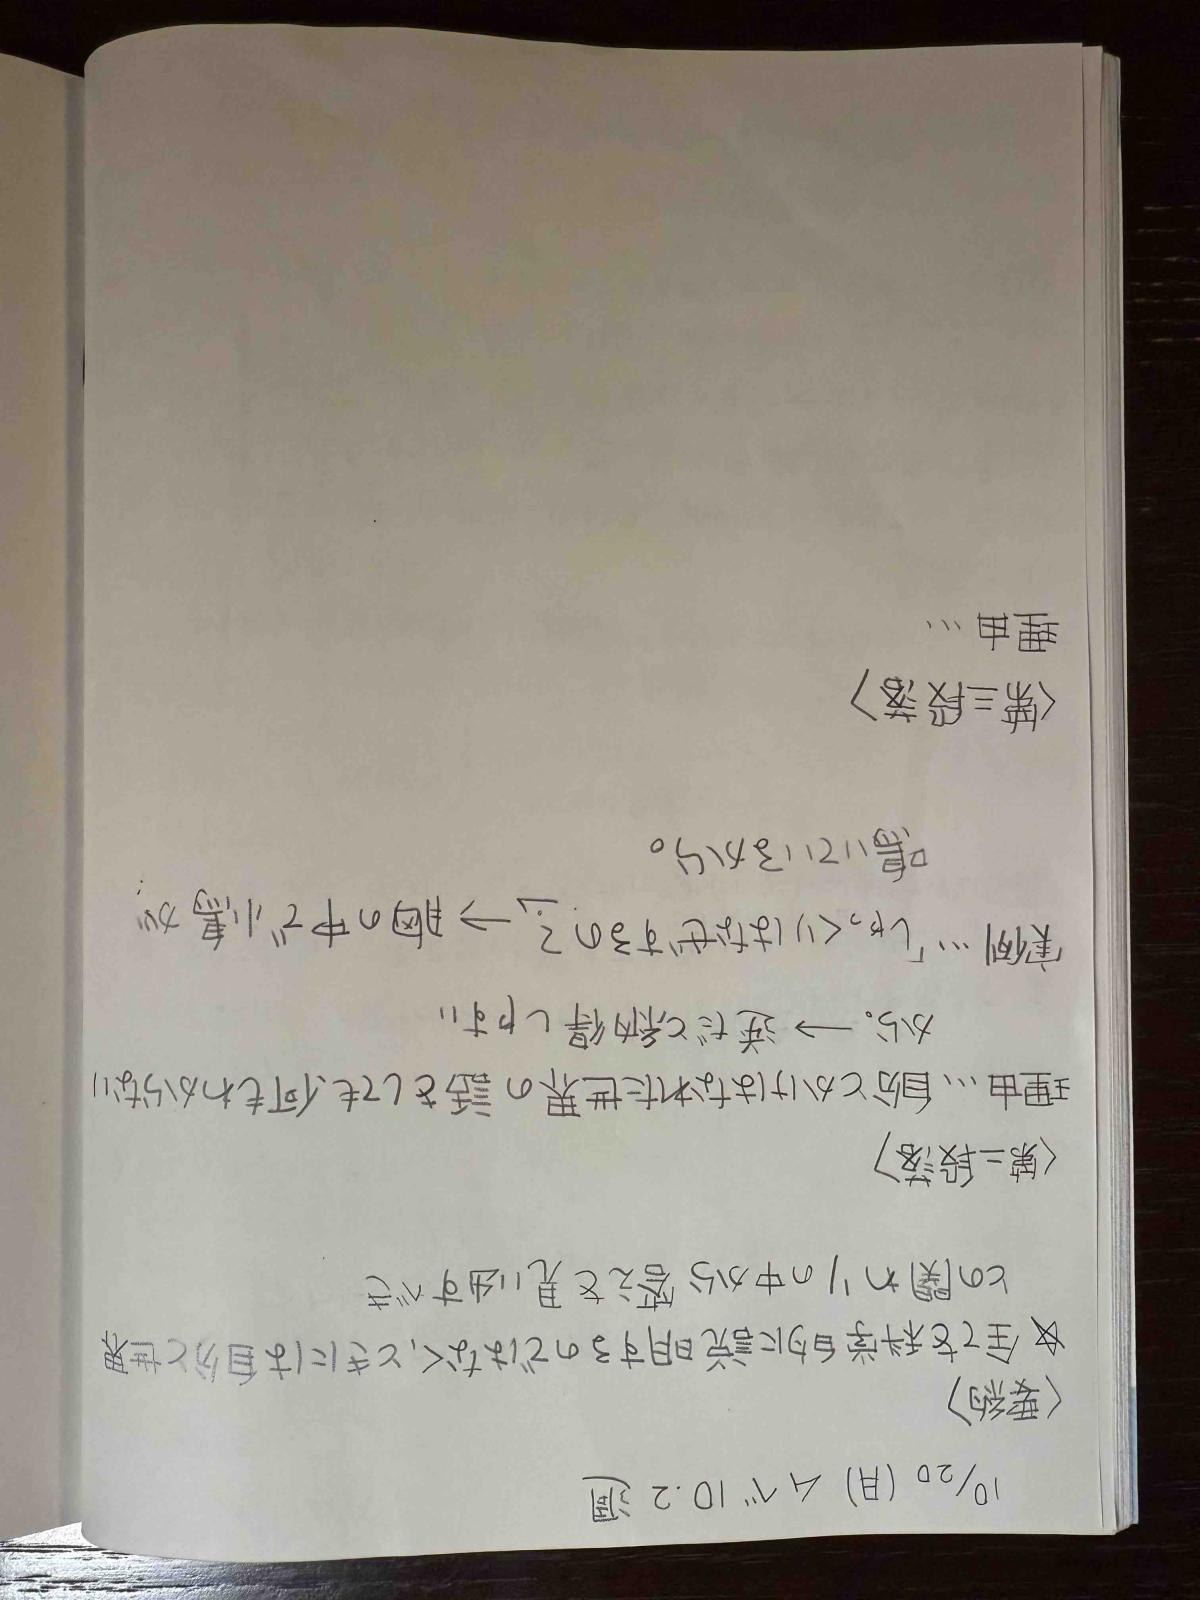 10/20 (月) ムベ 10.2 週
〈要約〉
☆ 全てを科学的に説明するのではなく、ときには自分と世界
との関わりの中から答えを見い出すべき
〈第二段落〉
理由… 自分とかけはなれた世界の話をしても、何もわからない
から。 → 逆だと納得しやすい
実例…「しゃっくりはなぜするの？」→ 胸の中で小鳥が
鳴いているから。
〈第三段落〉
理由…